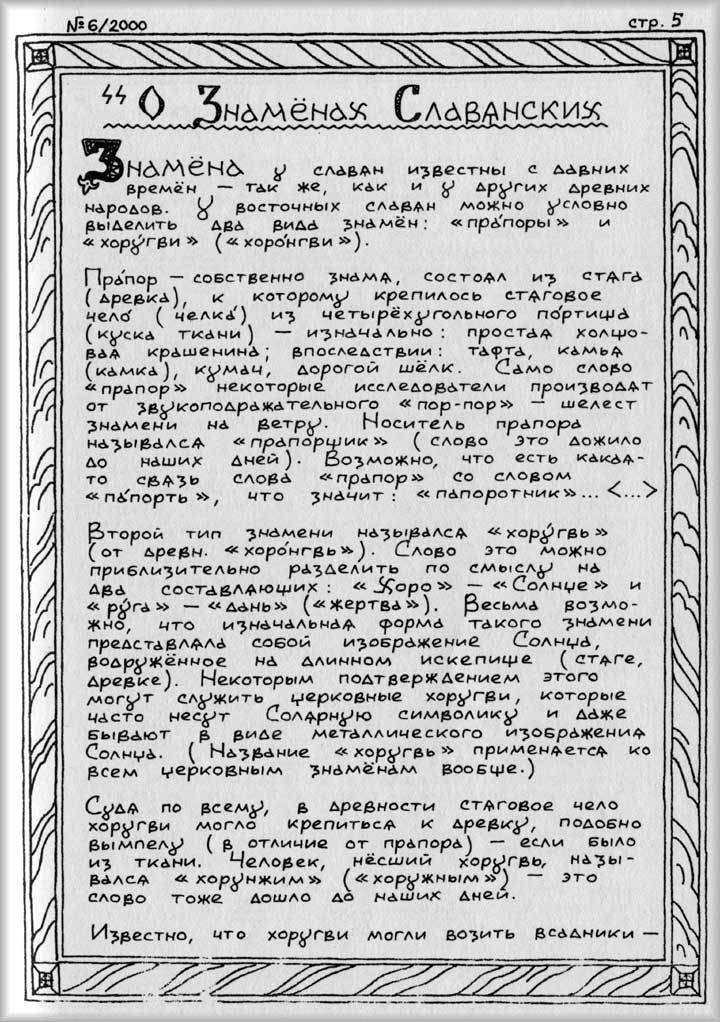 № 6/2000
стр. 5
ϟϟ О Знамёнах Славянских
Знамёна у славян известны с давних
времён — так же, как и у других древних
народов. У восточных славян можно условно
выделить два вида знамён: «пра́поры» и
«хору́гви» («хоро́нгви»).
Пра́пор — собственно знамя, состоял из стяга
(древка), к которому крепилось стяговое
чело́ (челка́) из четырёхугольного по́ртища
(куска ткани) — изначально: простая холщо-
вая крашенина; впоследствии: тафта, камья
(камка), кумач, дорогой шёлк. Само слово
«прапор» некоторые исследователи производят
от звукоподражательного «пор-пор» — шелест
знамени на ветру. Носитель прапора
назывался «прапорщик» (слово это дожило
до наших дней). Возможно, что есть какая-
то связь слова «прапор» со словом
«па́порть», что значит: «папоротник»... <...>
Второй тип знамени назывался «хору́гвь»
(от древн. «хоро́нгвь»). Слово это можно
приблизительно разделить по смыслу на
два составляющих: «Хоро» — «Солнце» и
«ру́га» — «дань» («жертва»). Весьма возмо-
жно, что изначальная форма такого знамени
представляла собой изображение Солнца,
водружённое на длинном искепище (стяге,
древке). Некоторым подтверждением этого
могут служить церковные хоругви, которые
часто несут Солярную символику и даже
бывают в виде металлического изображения
Солнца. (Название «хоругвь» применяется ко
всем церковным знамёнам вообще.)
Судя по всему, в древности стяговое чело
хоругви могло крепиться к древку, подобно
вымпелу (в отличие от прапора) — если было
из ткани. Человек, нёсший хоругвь, назы-
вался «хорунжим» («хоружным») — это
слово тоже дошло до наших дней.
Известно, что хоругви могли возить всадники —